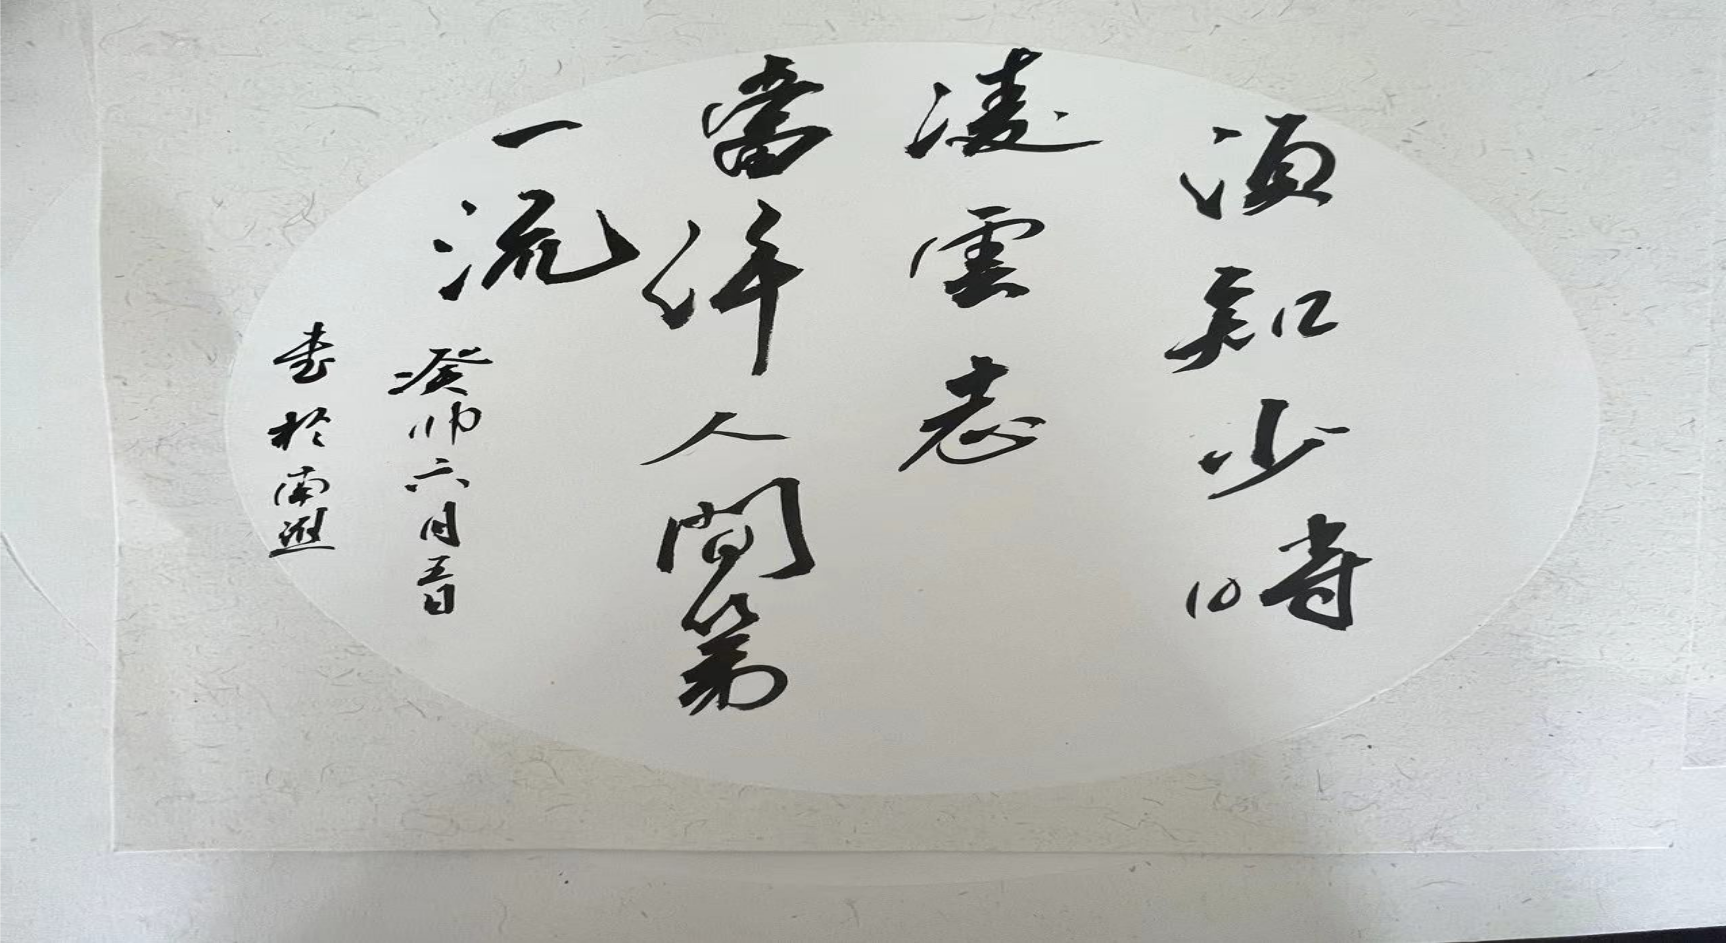 湏知少時
凌雲志
當許人間第
一流
癸卯六月五日
書於南